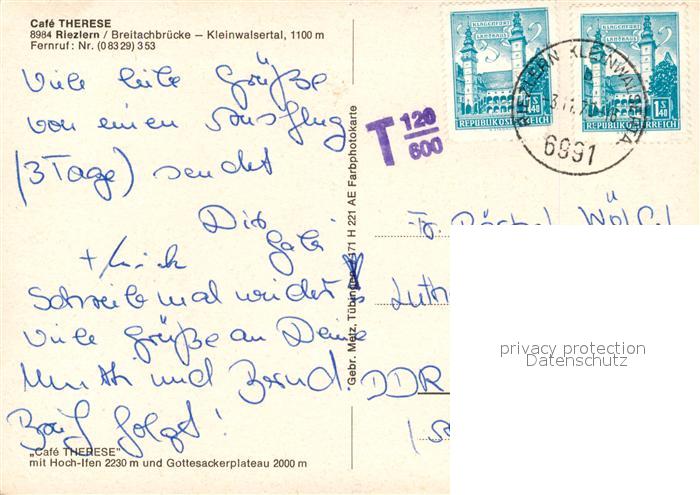 Café THERESE
8984 Riezlern / Breitachbrücke — Kleinwalsertal, 1100 m
Fernruf: Nr. (0 83 29) 3 53
Viele liebe Grüße
von einem Ausflug
(3 Tage) sendet
Dir Gabi
+
Schreib mal wieder!
Viele Grüße an Deine
Mutti und Bernd.
Brief folgt!
„Café THERESE"
mit Hoch-Ifen 2230 m und Gottesackerplateau 2000 m
Gebr. Metz, Tübingen 171 H 221 AE Farbphotokarte
T 120
600
KLAGENFURT
LANDHAUS
1 S
1.40
REPUBLIK ÖSTERREICH
KLAGENFURT
LANDHAUS
1 S
1.40
REPUBLIK ÖSTERREICH
RIEZLERN KLEINWALSERTAL
6991
Fr.
DDR
privacy protection
Datenschutz